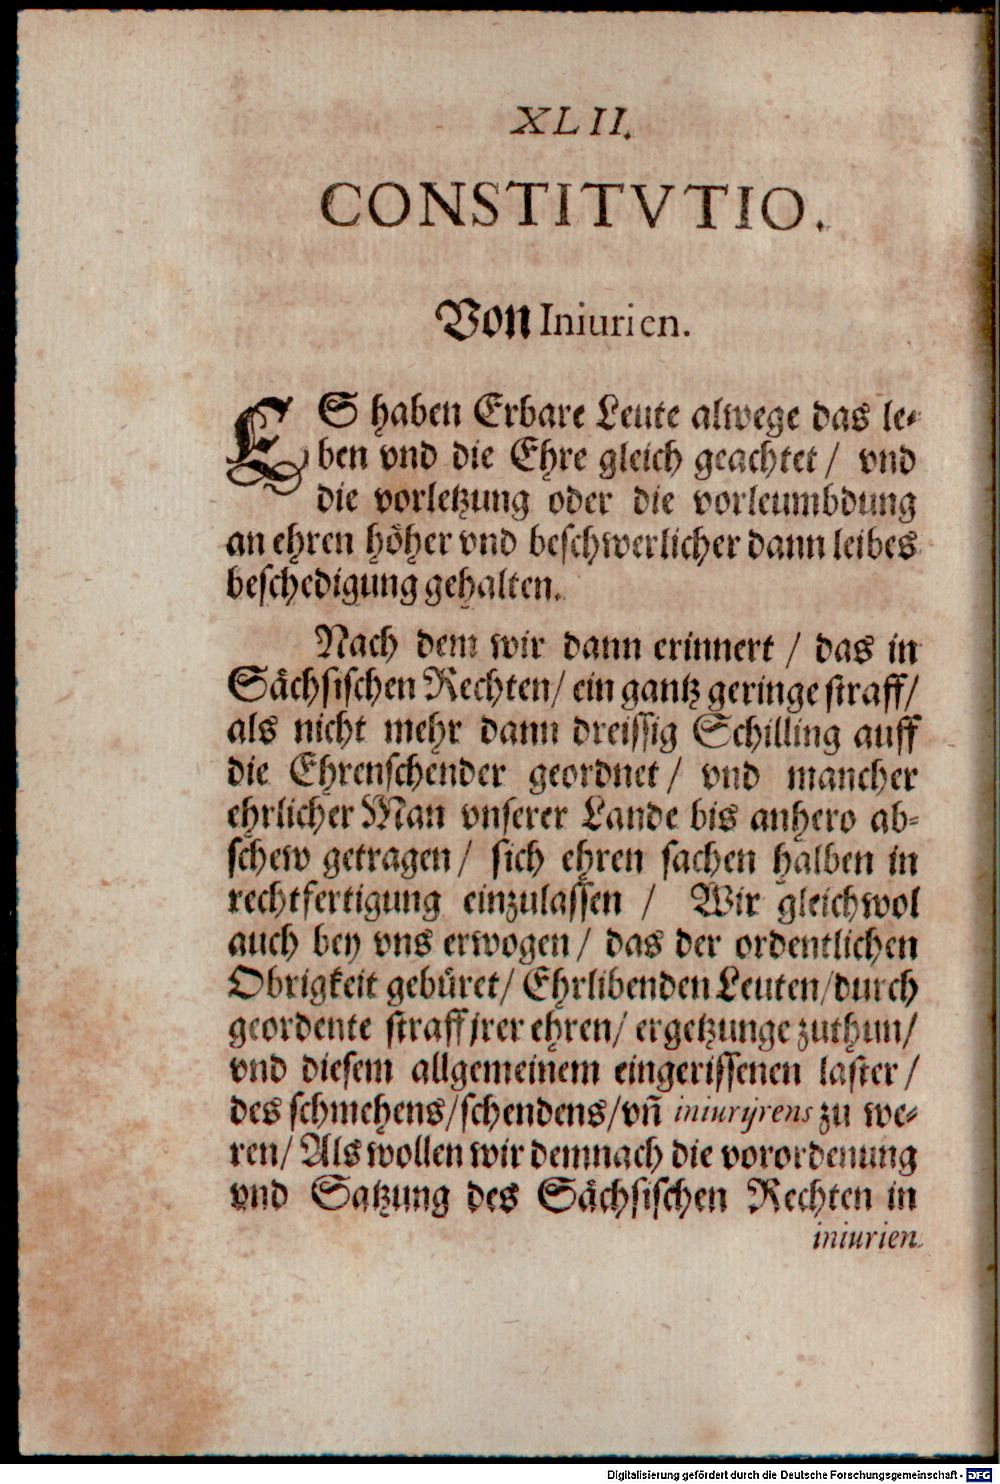 XLII.
CONSTITVTIO.
Von Iniurien.
ES haben Erbare Leute alwege das le⸗
ben vnd die Ehre gleich geachtet / vnd
die vorletzung oder die vorleumbdung
an ehren hoͤher vnd beschwerlicher dann leibes
beschedigung gehalten.
Nach dem wir dann erinnert / das in
Saͤchsischen Rechten/ ein gantz geringe straff/
als nicht mehr dann dreissig Schilling auff
die Ehrenschender geordnet / vnd mancher
ehrlicher Man vnserer Lande bis anhero ab⸗
schew getragen / sich ehren sachen halben in
rechtfertigung einzulassen / Wir gleichwol
auch bey vns erwogen / das der ordentlichen
Obrigkeit gebuͤret/ Ehrlibenden Leuten/durch
geordente straff jrer ehren/ ergetzunge zuthun/
vnd diesem allgemeinem eingerissenen laster /
des schmehens/schendens/vñ iniurijrens zu we⸗
ren/ Als wollen wir demnach die vorordenung
vnd Satzung des Saͤchsischen Rechten in
iniurien.
Digitalisierung gefördert durch die Deutsche Forschungsgemeinschaft - DFG